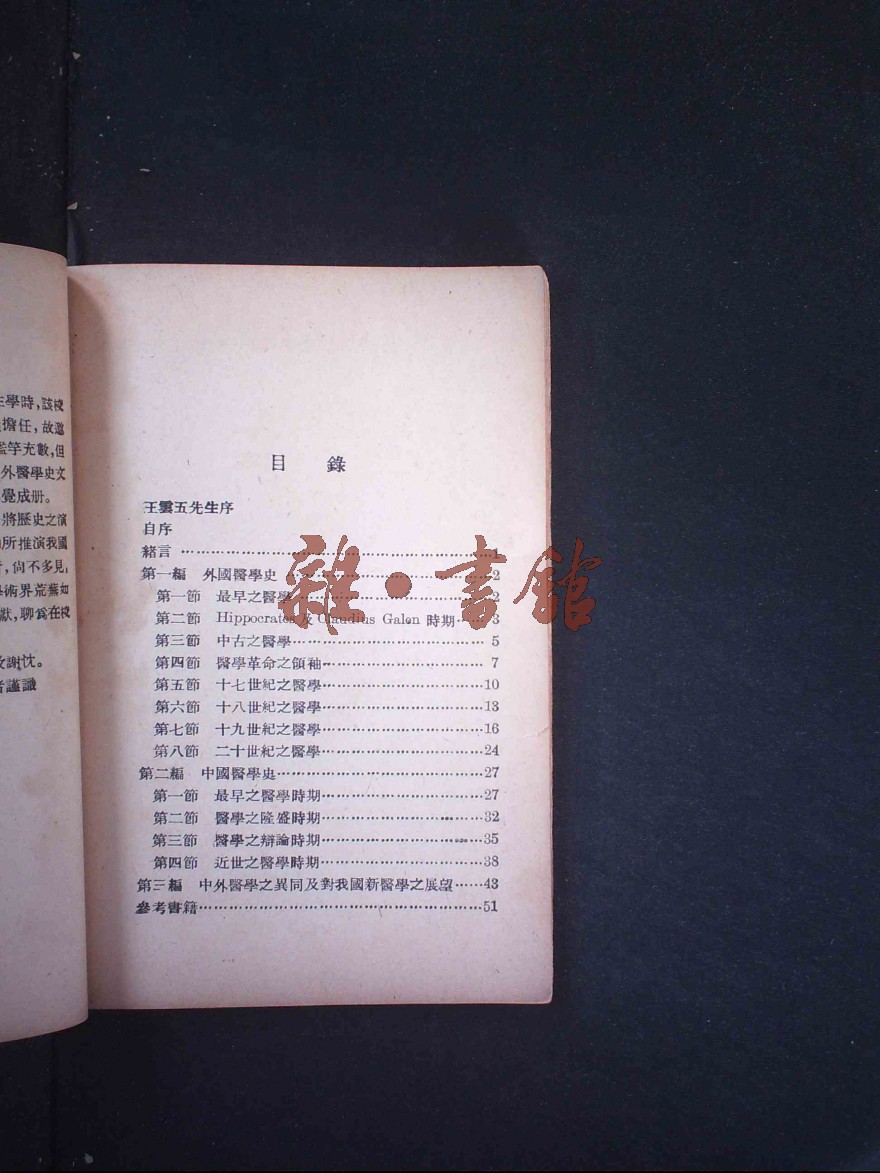 生學時，該校
擔任，故邀
濫竽充數，但
外醫學史文
覺成册。
將歷史之演
所推演我國
，尙不多見，
學術界荒蕪如
獻，聊爲在校
謝忱。
者謹識
目　錄
王雲五先生序
自序
緒言 ………………………………………1
第一編　外國醫學史 ………………………2
第一節　最早之醫學………………………2
第二節　Hippocrates 及 Claudius Galen 時期…3
第三節　中古之醫學………………………5
第四節　醫學革命之領袖…………………7
第五節　十七世紀之醫學…………………10
第六節　十八世紀之醫學…………………13
第七節　十九世紀之醫學…………………16
第八節　二十世紀之醫學…………………24
第二編　中國醫學史………………………27
第一節　最早之醫學時期…………………27
第二節　醫學之隆盛時期…………………32
第三節　醫學之辯論時期…………………35
第四節　近世之醫學時期…………………38
第三編　中外醫學之異同及對我國新醫學之展望……43
參考書籍……………………………………51
雜·書館